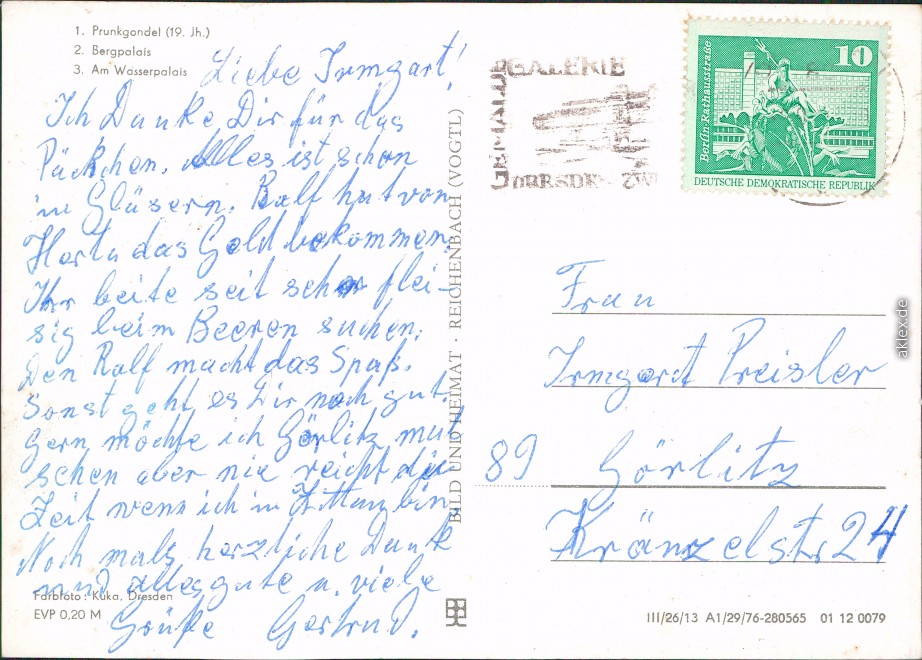 1. Prunkgondel (19. Jh.)
2. Bergpalais
3. Am Wasserpalais
Liebe Irmgart!
Ich Danke Dir für das
Päckchen. Alles ist schon
in Gläsern. Ralf hat von
Herta das Geld bekommen.
Ihr beite seit schon flei-
sig beim Beeren suchen.
Den Ralf macht das Spaß.
Sonst geht es Dir noch gut.
Gern möchte ich Görlitz mal
sehen aber nie reicht die
Zeit wenn ich in Zittau bin
Noch mals herzliche Dank
und alles gute u. viele
Grüße Gertrud.
Farbfoto: Kuka, Dresden
EVP 0,20 M
BILD UND HEIMAT · REICHENBACH (VOGTL)
GEMÄLDE
GALERIE
DRESDEN
10
Berlin · Rathausstraße
DEUTSCHE DEMOKRATISCHE REPUBLIK
Frau
Irmgard Preisler
89 Görlitz
Kränzelstr. 24
III/26/13 A1/29/76-280565 01 12 0079
aklex.de